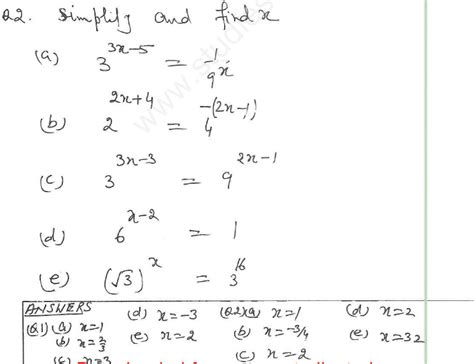 Q2. Simplify and find x
(a) 3^(3x-5) = 1/9^x
(b) 2^(2x+4) = 4^(-(2x-1))
(c) 3^(3x-3) = 9^(2x-1)
(d) 6^(x-2) = 1
(e) (√3)^x = 3^16
ANSWERS (d) x=-3 (Q2)(a) x=1 (d) x=2
(Q.1) (a) x=1 (e) x=2 (b) x=-3/4 (e) x=32
(b) x=2/3
(c) x=3 (c) x=2
www.studies